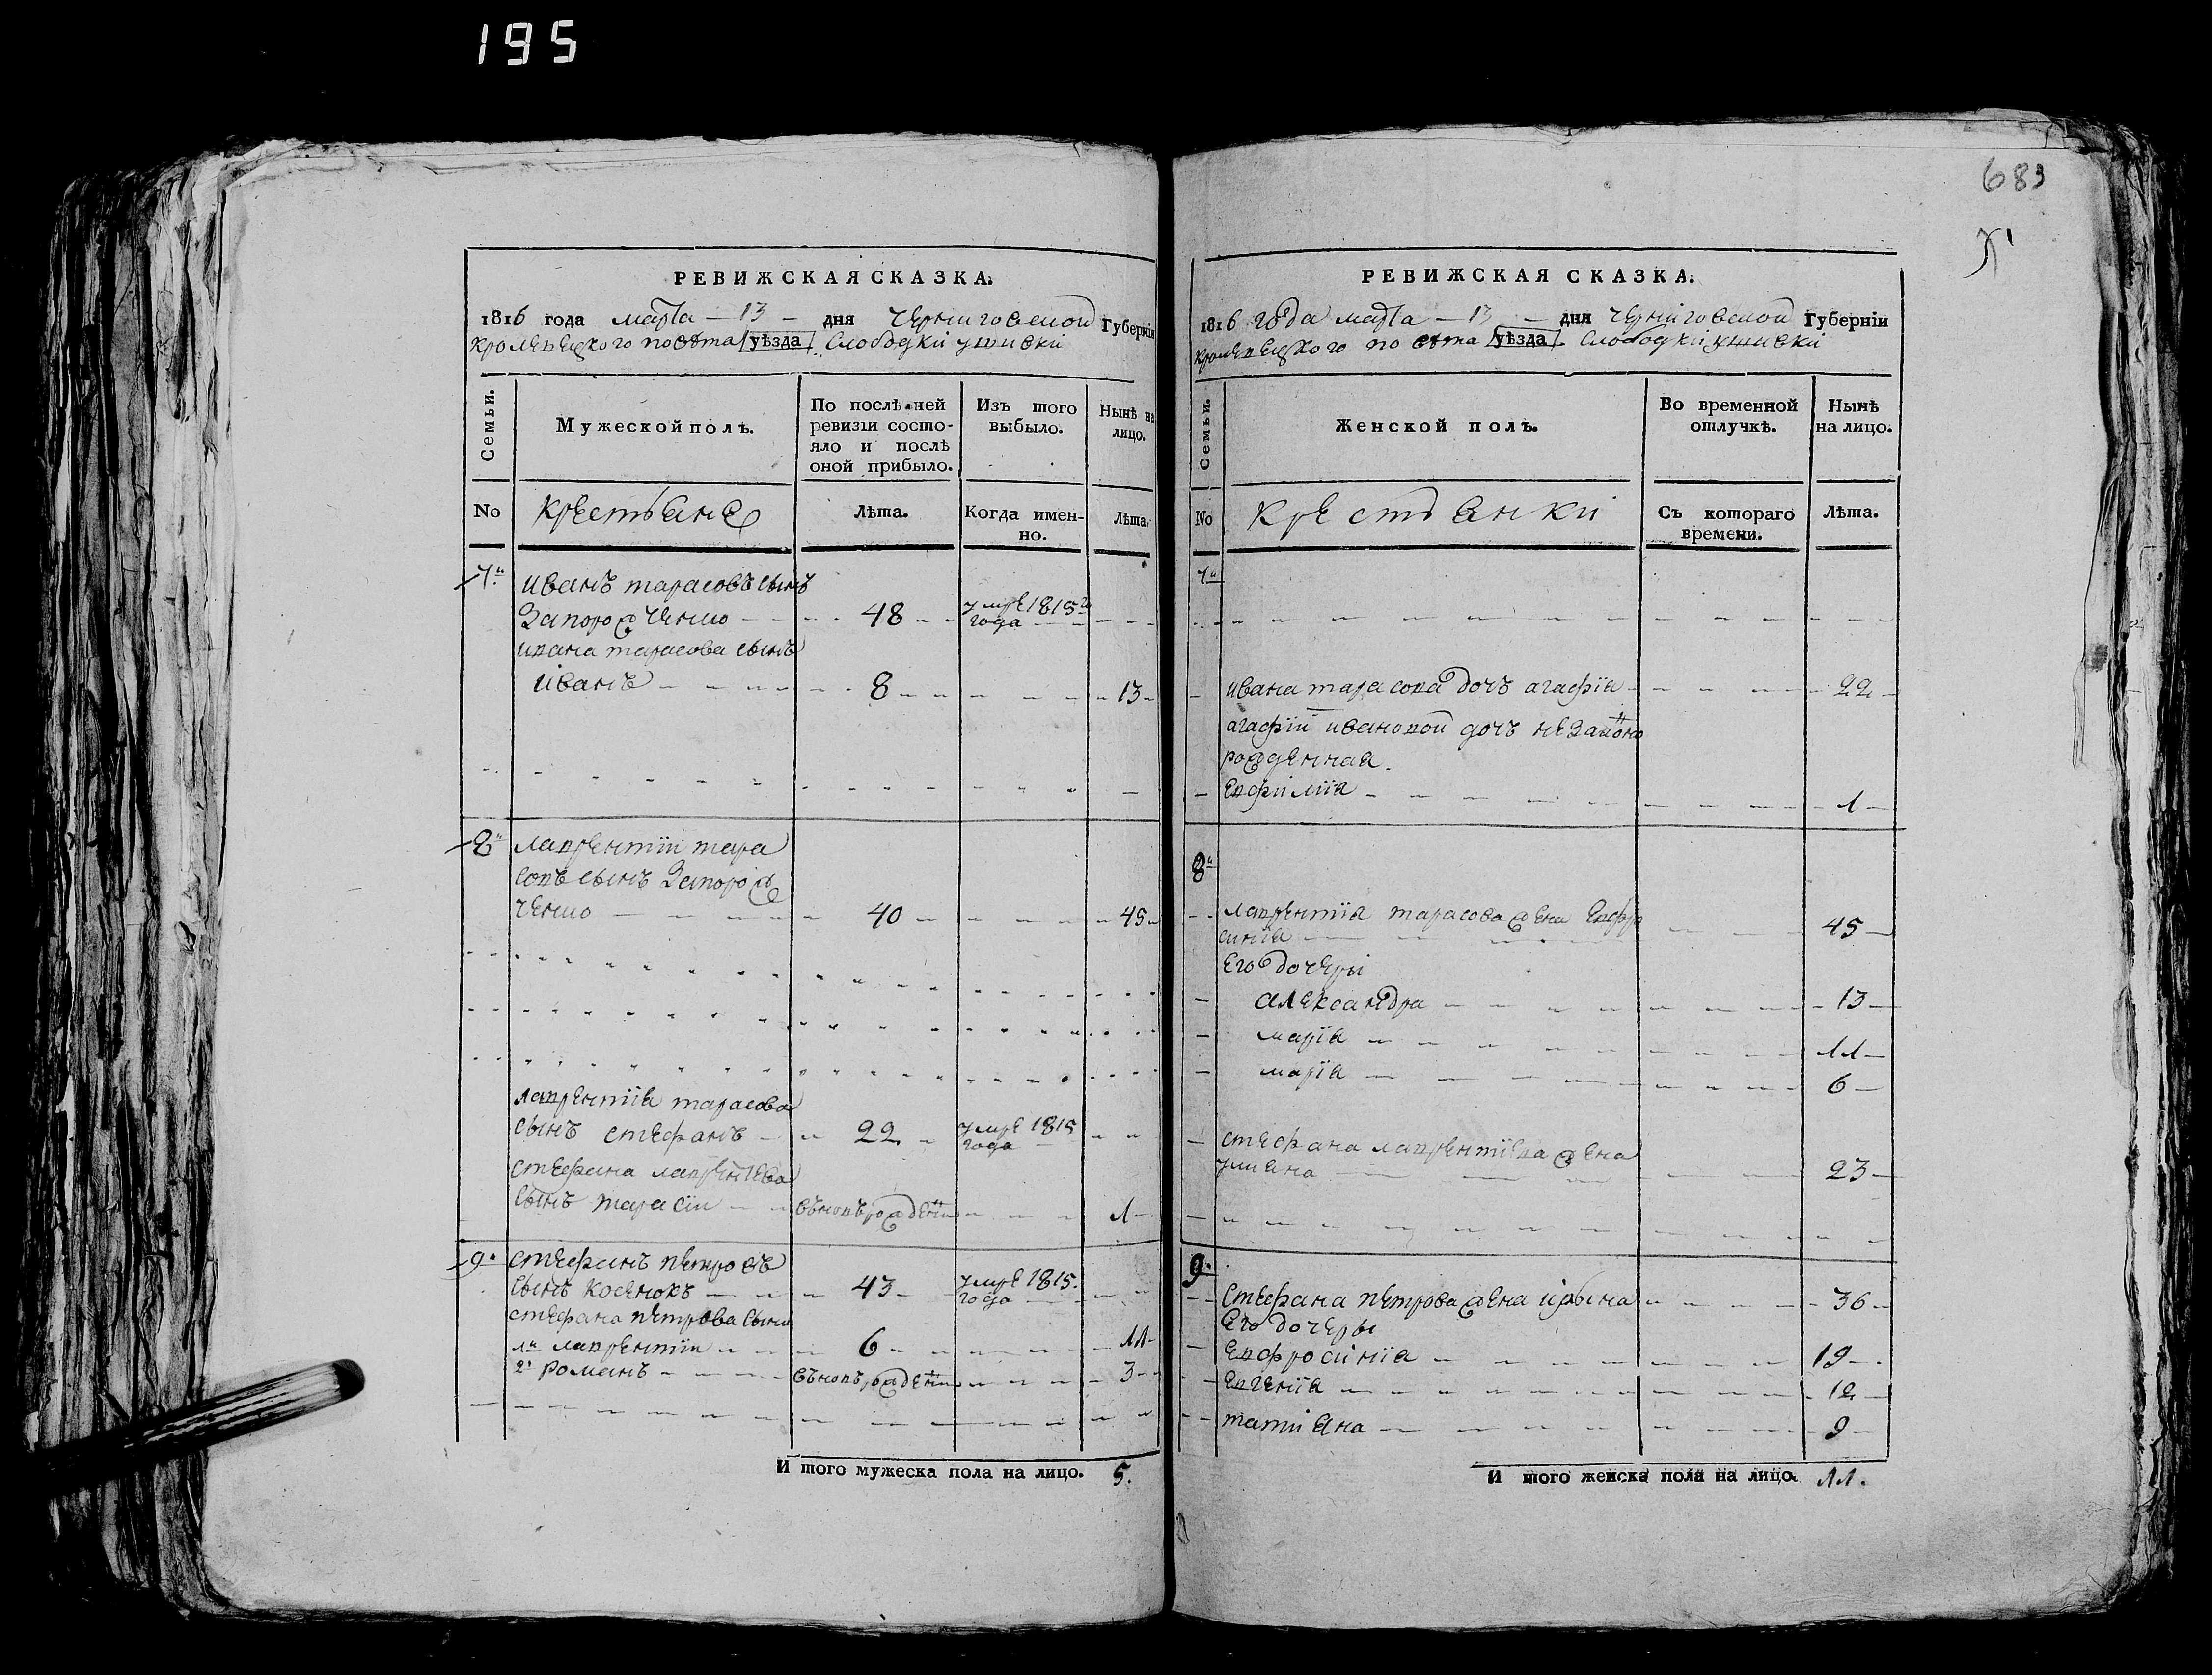 195
683
РЕВИЖСКАЯ СКАЗКА.
1816 года марта 13 дня Черниговской Губерніи
Кролевецкого повѣта уѣзда Слободки
Семьи.
Мужеской полъ.
По послѣдней ревизіи состо-
яло и послѣ
оной прибыло.
Изъ того
выбыло.
Нынѣ на
лицо.
No
крестьяне
Лѣта.
Когда имен-
но.
Лѣта.
7й
иванъ тарасовъ сынъ
Запорожченко 48 умре 1815го
года
ивана тарасова сынъ
иванъ 8 13
8й
лаврентій тара
совъ сынъ Запорож
ченко 40 45
лаврентія тарасова
сынъ стефанъ 22 умре 1815
года
стефана лаврентіева
сынъ тарасій вновь рожденъ 1
9.
стефанъ петровъ
сынъ косенокъ 43 умре 1815.
года
стефана петрова сыни
1й лаврентій 6 11
2й романъ вновь рожденъ 3
И того мужеска пола на лицо. 5.
РЕВИЖСКАЯ СКАЗКА.
1816 года марта 13 дня Черниговской Губерніи
Кролевецкого повѣта уѣзда Слободки
Семьи.
Женской полъ.
Во временной
отлучкѣ.
Нынѣ
на лицо.
No
крестьянки
Съ котораго
времени.
Лѣта.
7й
ивана тарасова дочъ агафія 22
агафіи ивановой дочъ незаконо
рожденная
евфимія 1
8й
лаврентія тарасова жена евфро
синія 45
Его дочери
александра 13
марія 11
марія 6
стефана лаврентіева жена
уліяна 23
9.
стефана петрова жена ирына 36
Его дочеры
евфросинія 19
евгенія 12
татіяна 9
И того женска пола на лицо. 11.